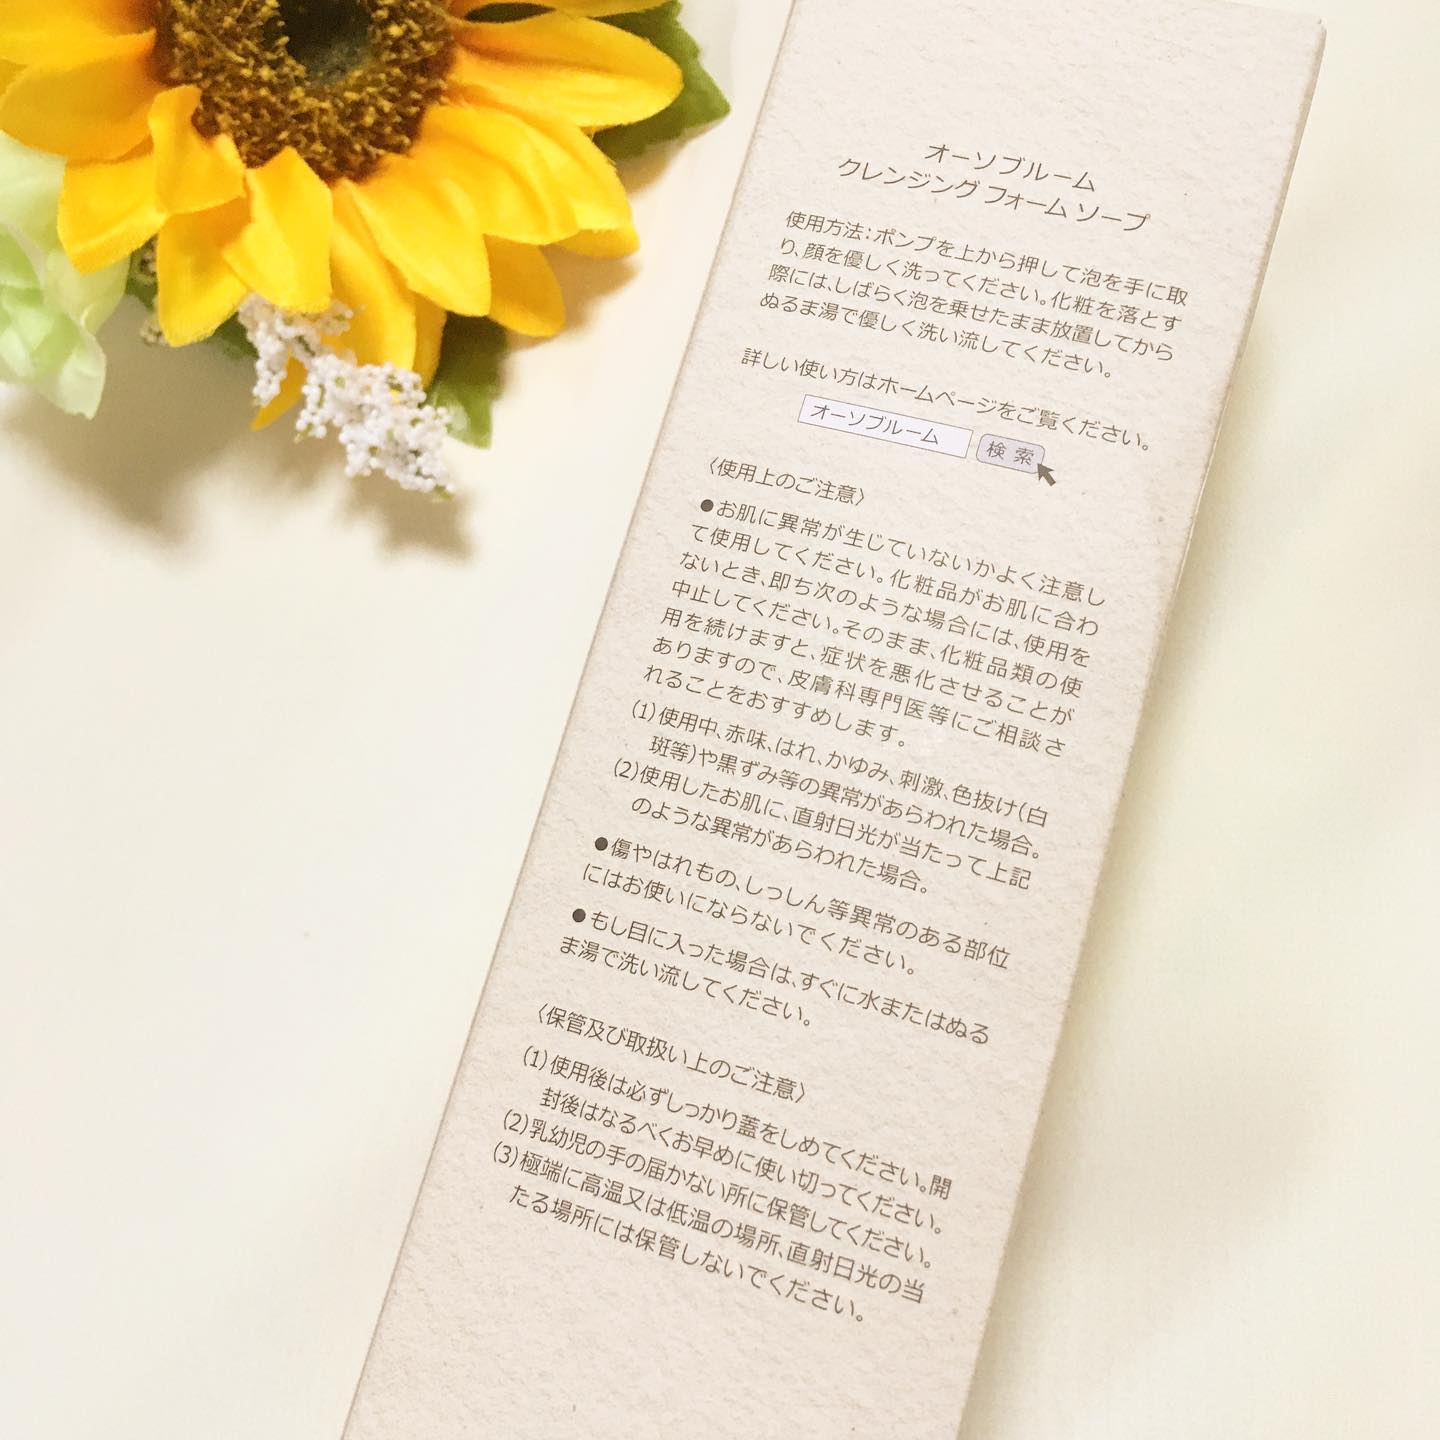 オーソブルーム
クレンジング フォーム ソープ
使用方法：ポンプを上から押して泡を手に取
り、顔を優しく洗ってください。化粧を落とす
際には、しばらく泡を乗せたまま放置してから
ぬるま湯で優しく洗い流してください。
詳しい使い方はホームページをご覧ください。
オーソブルーム 検索
〈使用上のご注意〉
●お肌に異常が生じていないかよく注意し
て使用してください。化粧品がお肌に合わ
ないとき、即ち次のような場合には、使用を
中止してください。そのまま、化粧品類の使
用を続けますと、症状を悪化させることが
ありますので、皮膚科専門医等にご相談さ
れることをおすすめします。
(1)使用中、赤味、はれ、かゆみ、刺激、色抜け(白
斑等)や黒ずみ等の異常があらわれた場合。
(2)使用したお肌に、直射日光が当たって上記
のような異常があらわれた場合。
●傷やはれもの、しっしん等異常のある部位
にはお使いにならないでください。
●もし目に入った場合は、すぐに水またはぬる
ま湯で洗い流してください。
〈保管及び取扱い上のご注意〉
(1)使用後は必ずしっかり蓋をしめてください。開
封後はなるべくお早めに使い切ってください。
(2)乳幼児の手の届かない所に保管してください。
(3)極端に高温又は低温の場所、直射日光の当
たる場所には保管しないでください。